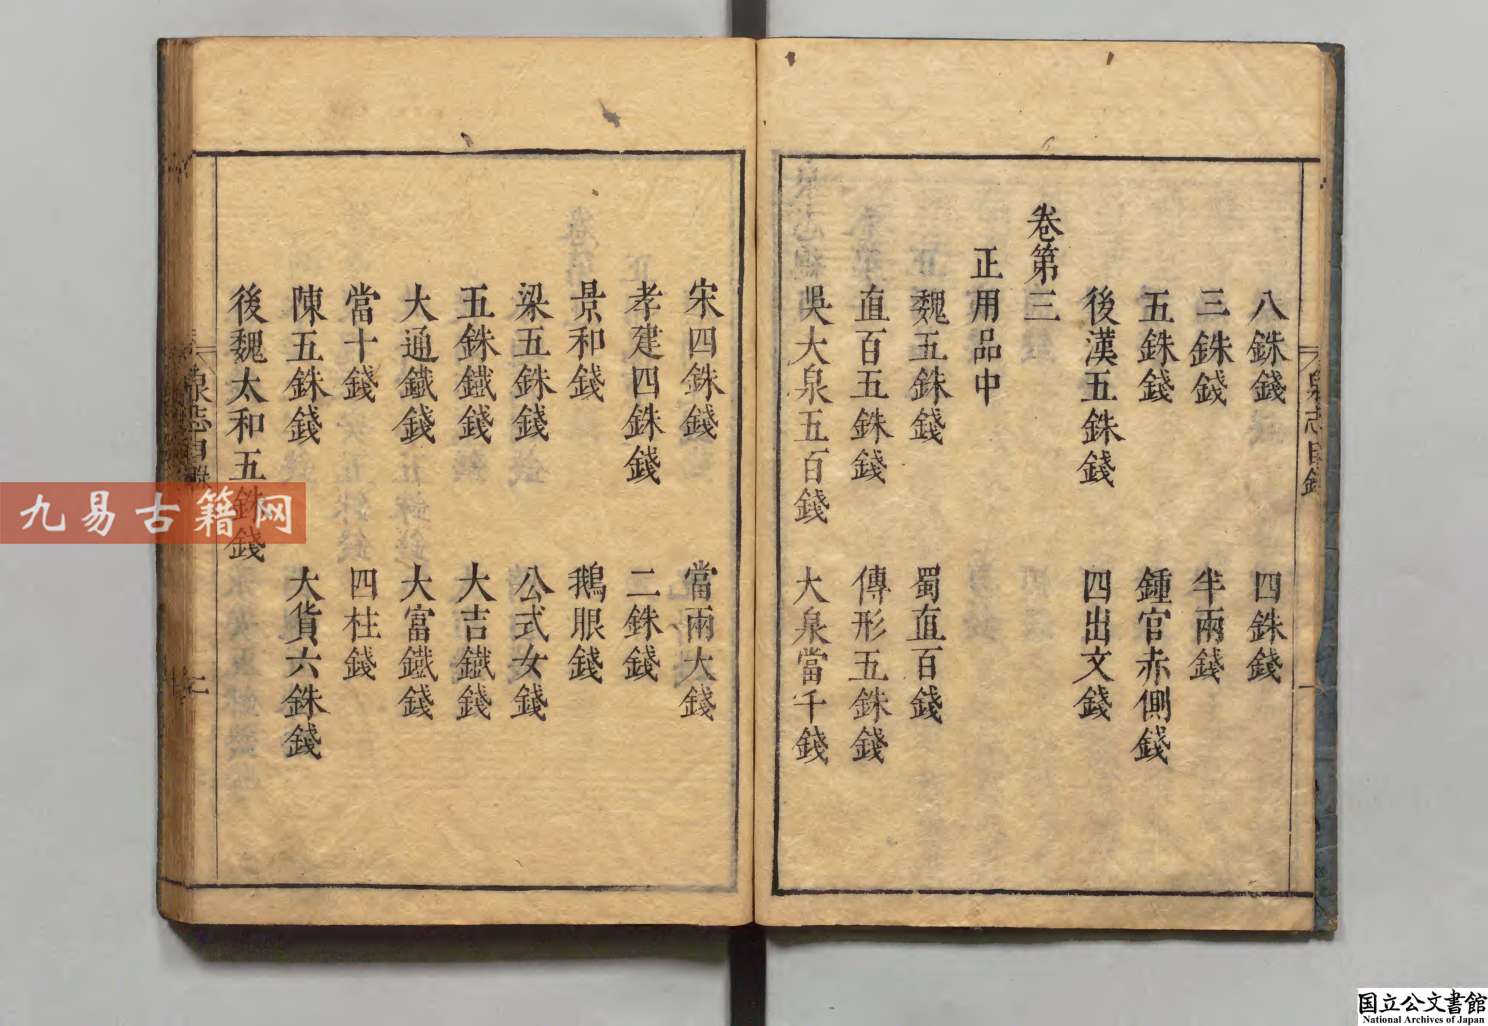 八銖錢　四銖錢
三銖錢　半兩錢
五銖錢　鍾官赤側錢
後漢五銖錢　四出文錢
卷第三
正用品中
魏五銖錢　蜀直百錢
直百五銖錢　傳形五銖錢
吳大泉五百錢　大泉當千錢
宋四銖錢　當兩大錢
孝建四銖錢　二銖錢
景和錢　鵝眼錢
梁五銖錢　公式女錢
五銖鐵錢　大吉鐵錢
大通鐵錢　大富鐵錢
當十錢　四柱錢
陳五銖錢　大貨六銖錢
後魏太和五銖錢
泉志目錄
九易古籍网
国立公文書館
National Archives of Japan